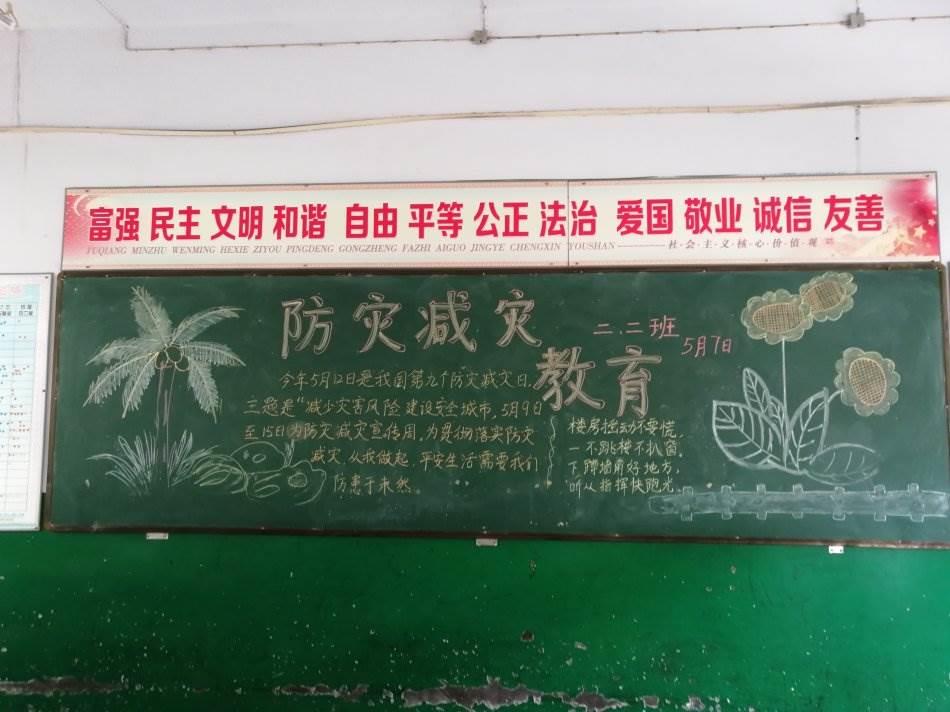 富强 民主 文明 和谐 自由 平等 公正 法治 爱国 敬业 诚信 友善
FUQIANG MINZHU WENMING HEXIE ZIYOU PINGDENG GONGZHENG FAZHI AIGUO JINGYE CHENGXIN YOUSHAN
社·会·主·义·核·心·价·值·观
防灾减灾
教育
二.二班
5月7日
今年5月12日是我国第九个防灾减灾日,
主题是“减少灾害风险 建设安全城市,5月9日
至15日为防灾减灾宣传周,为贯彻落实防灾
减灾,从我做起,平安生活需要我们
防患于未然。
楼房摇动不要慌,
一不跳楼不扒窗。
下蹲墙角好地方,
听从指挥快跑光。